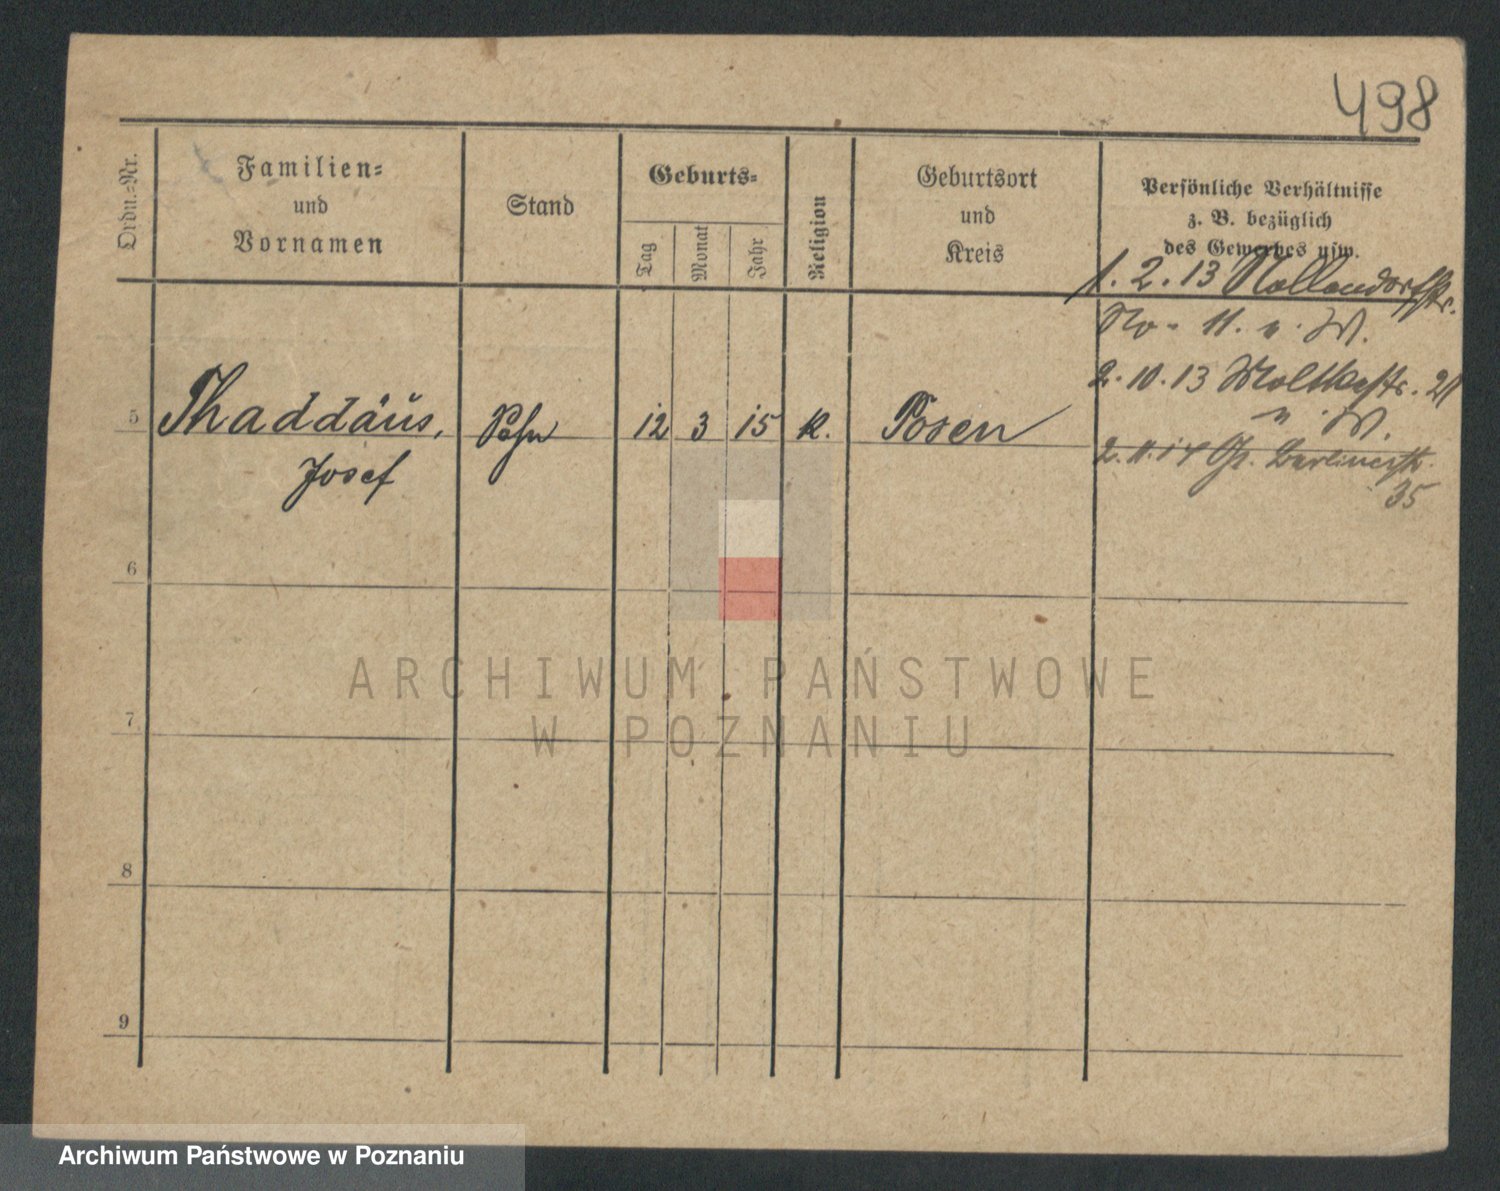 498
Ordn.-Nr.
Familien-
und
Vornamen
Stand
Geburts-
Tag
Monat
Jahr
Religion
Geburtsort
und
Kreis
Persönliche Verhältnisse
z. B. bezüglich
des Gewerbes usw.
1. 2. 13 Nollendorfstr.
No 11. u. W.
2. 10. 13 Moltkestr. 21
u. W.
2. 11. 14 Gr. Berlinerstr.
35
5 Thaddäus, Sohn 12 3 15 K. Posen
Josef
6
7
8
9
ARCHIWUM PAŃSTWOWE
W POZNANIU
Archiwum Państwowe w Poznaniu